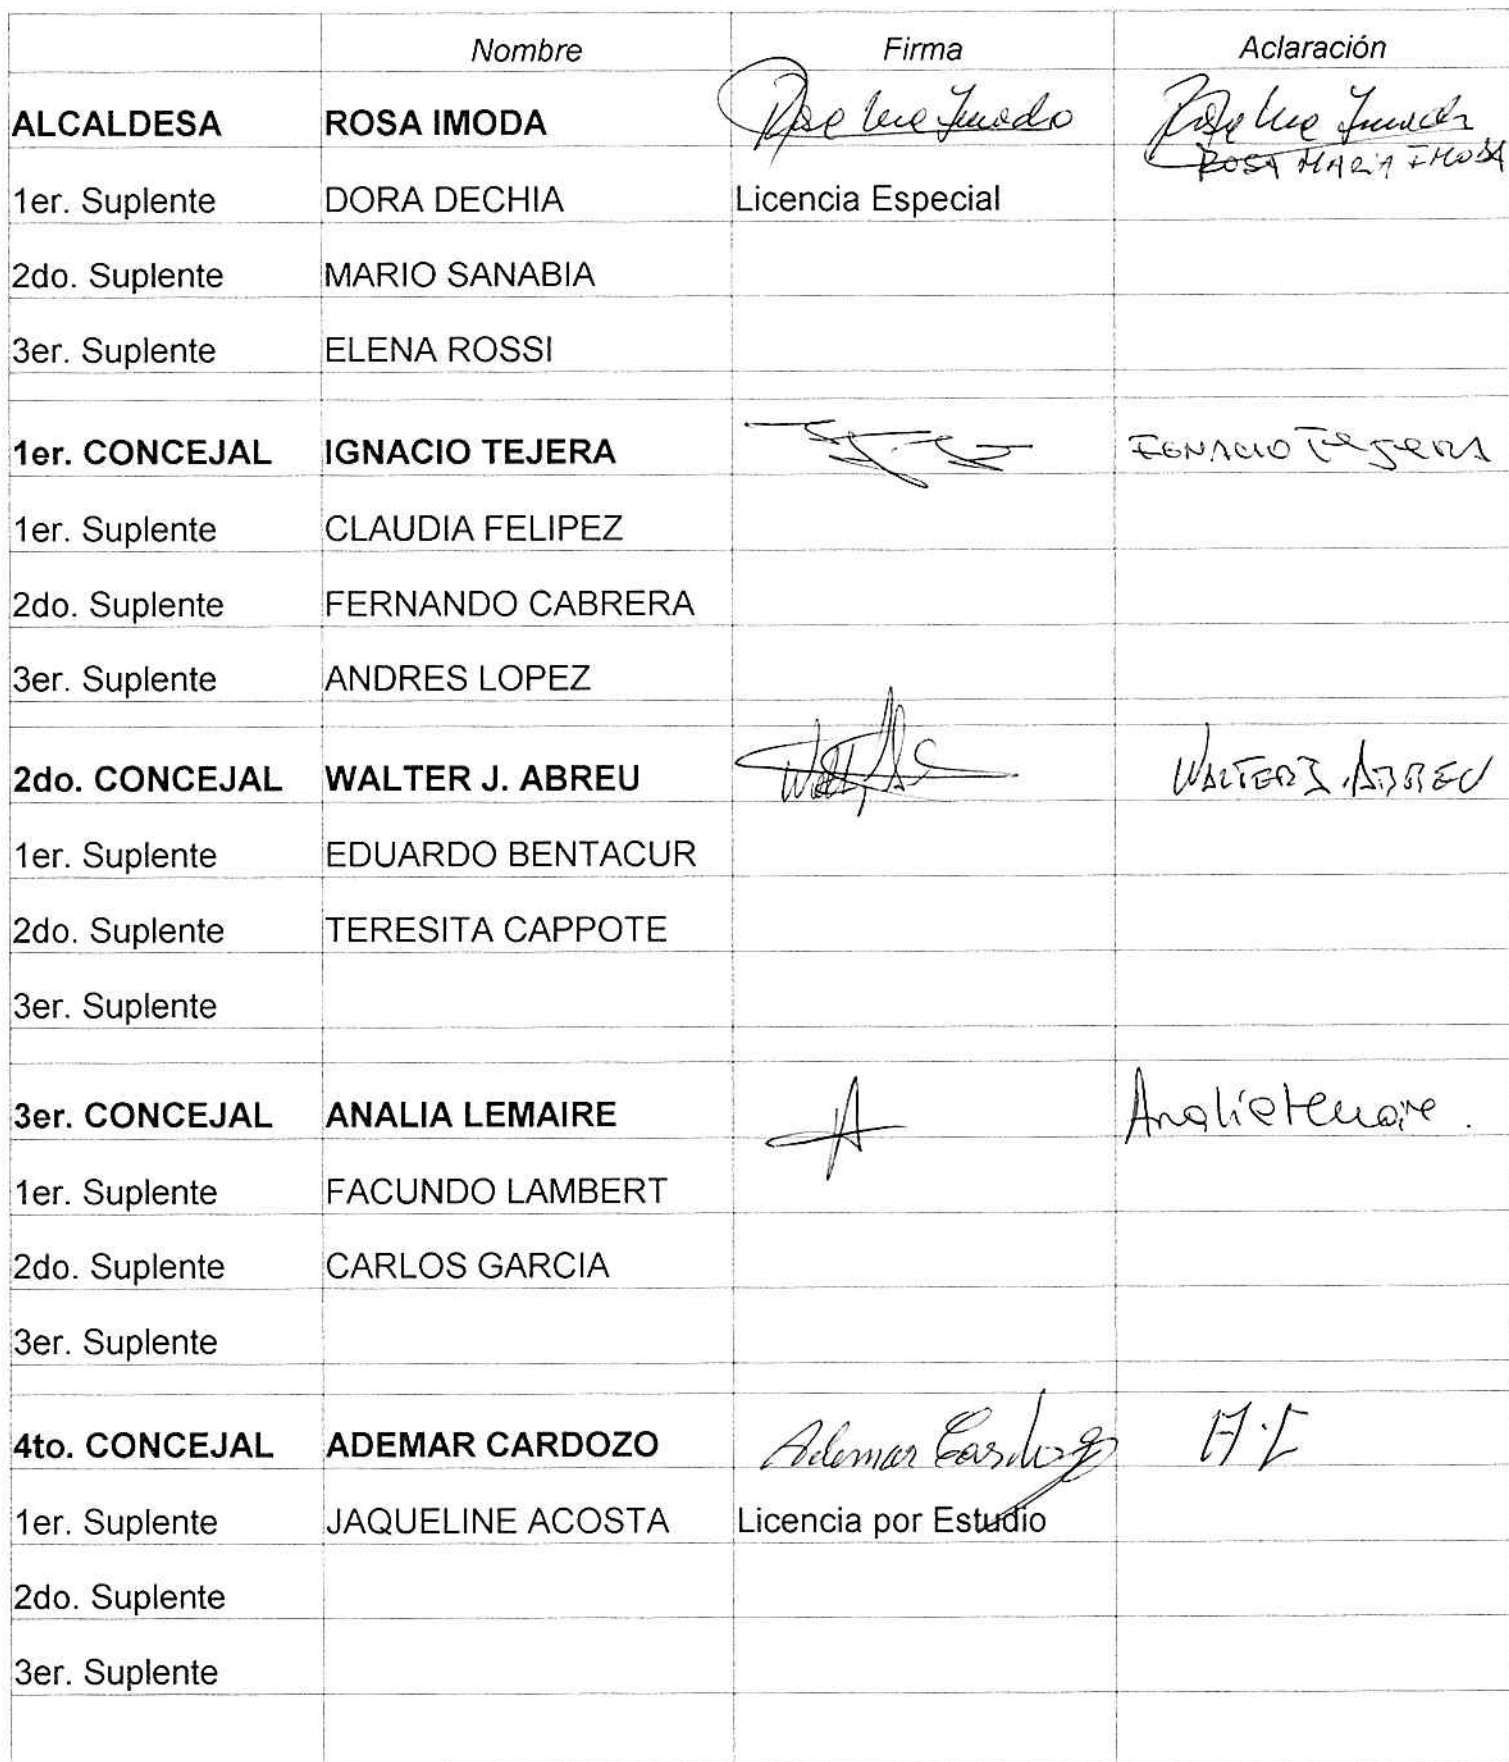 Nombre Firma Aclaración
ALCALDESA ROSA IMODA
ROSA MARIA IMODA
1er. Suplente DORA DECHIA Licencia Especial
2do. Suplente MARIO SANABIA
3er. Suplente ELENA ROSSI
1er. CONCEJAL IGNACIO TEJERA IGNACIO Tejera
1er. Suplente CLAUDIA FELIPEZ
2do. Suplente FERNANDO CABRERA
3er. Suplente ANDRES LOPEZ
2do. CONCEJAL WALTER J. ABREU WALTER J. ABREU
1er. Suplente EDUARDO BENTACUR
2do. Suplente TERESITA CAPPOTE
3er. Suplente
3er. CONCEJAL ANALIA LEMAIRE A Analia Lemaire.
1er. Suplente FACUNDO LAMBERT
2do. Suplente CARLOS GARCIA
3er. Suplente
4to. CONCEJAL ADEMAR CARDOZO Ademar Cardozo A.C
1er. Suplente JAQUELINE ACOSTA Licencia por Estudio
2do. Suplente
3er. Suplente